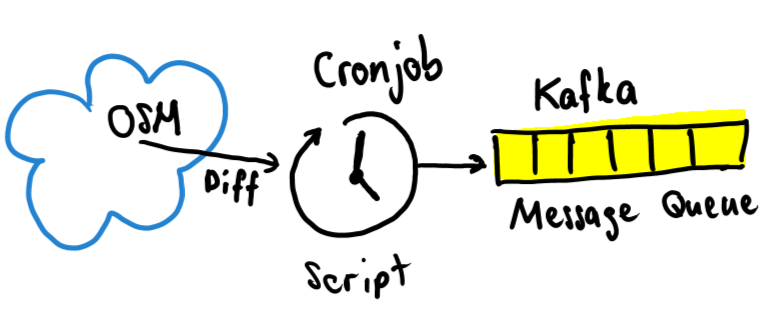 OSM
Diff
Cronjob
Script
Kafka
Message Queue